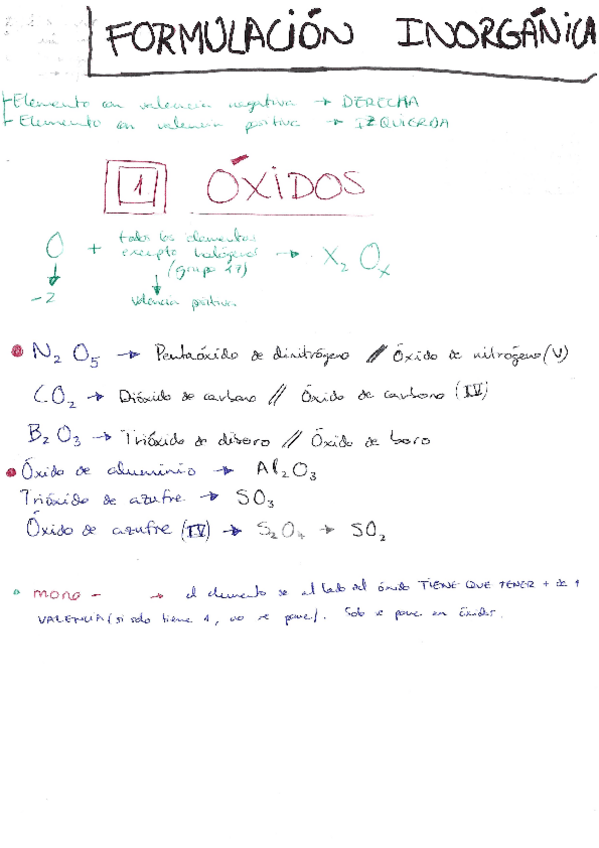 FORMULACIÓN INORGÁNICA
Elemento con valencia negativa → DERECHA
Elemento con valencia positiva → IZQUIERDA
1 ÓXIDOS
O + todos los elementos excepto halógenos (grupo 17) → X₂ Oₓ
-2 valencia positiva
N₂ O₅ → Pentaóxido de dinitrógeno // Óxido de nitrógeno (V)
CO₂ → Dióxido de carbono // Óxido de carbono (IV)
B₂ O₃ → Trióxido de diboro // Óxido de boro
Óxido de aluminio → Al₂O₃
Trióxido de azufre → SO₃
Óxido de azufre (IV) → S₂O₄ → SO₂
mono - → el elemento de al lado del óxido TIENE QUE TENER + de 1
VALENCIA (si solo tiene 1, no se pone). Solo se pone en óxidos.